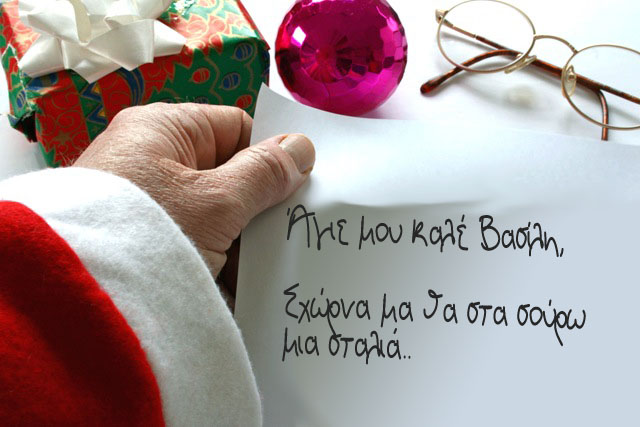 Άγιε μου καλέ Βασίλη,
Σχώρνα μα θα στα σούρω
μια σταλιά..